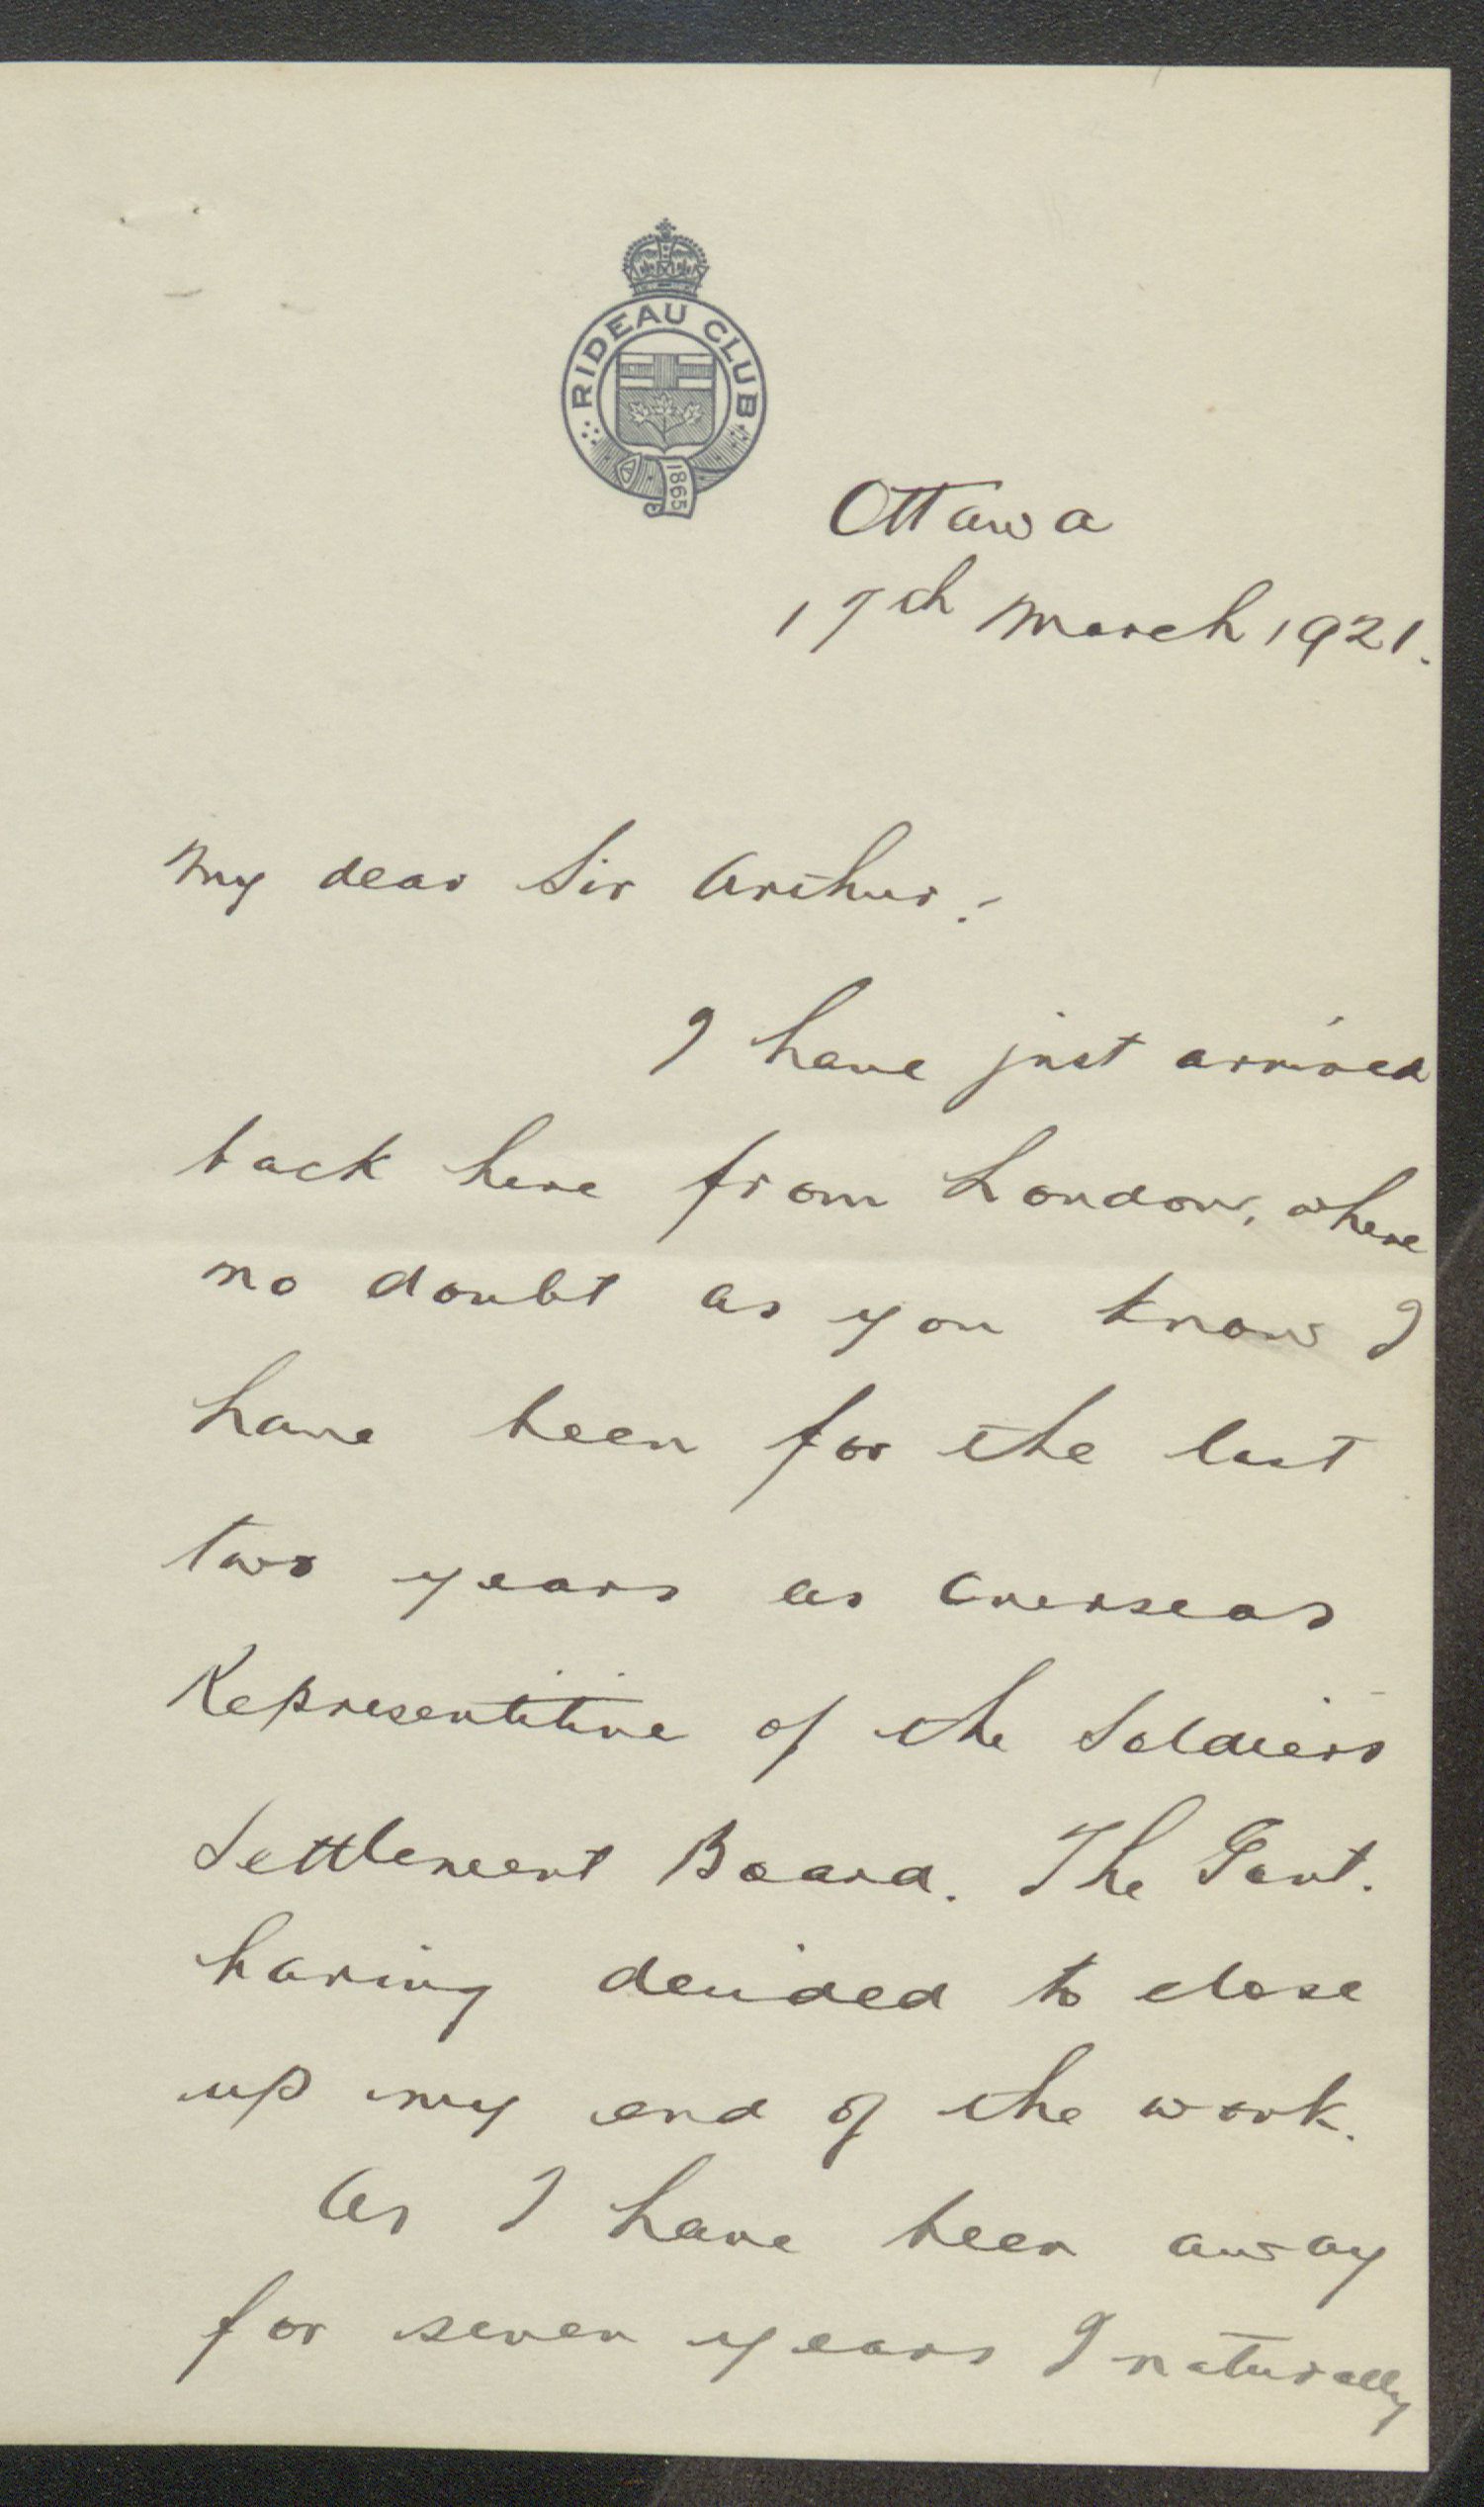 RIDEAU CLUB
1865
Ottawa
17th March 1921.
My dear Sir Arthur:-
I have just arrived
back here from London, where
no doubt as you know I
have been for the last
two years as Overseas
Representitive of the Soldiers
Settlement Board. The Govt.
having decided to close
up my end of the work.
As I have been away
for seven years I naturally